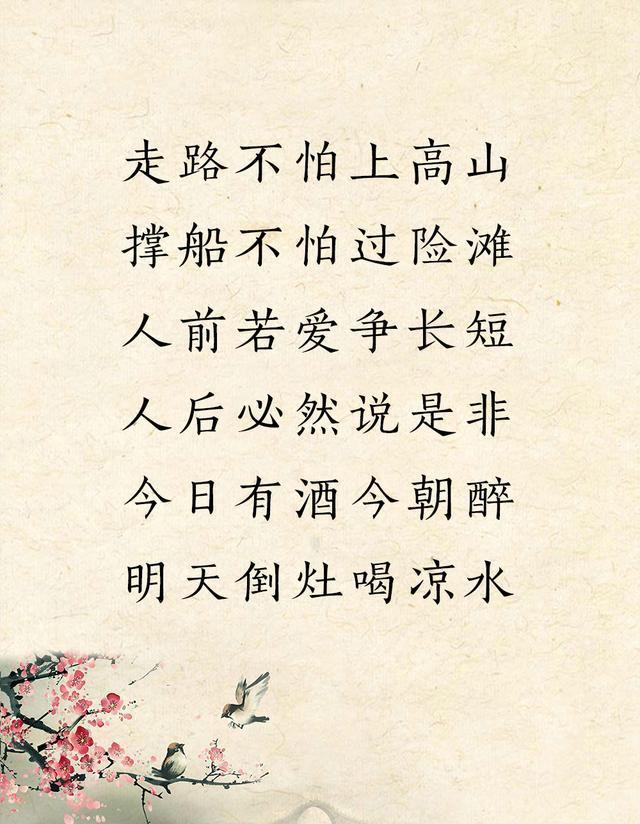 走路不怕上高山
撑船不怕过险滩
人前若爱争长短
人后必然说是非
今日有酒今朝醉
明天倒灶喝凉水